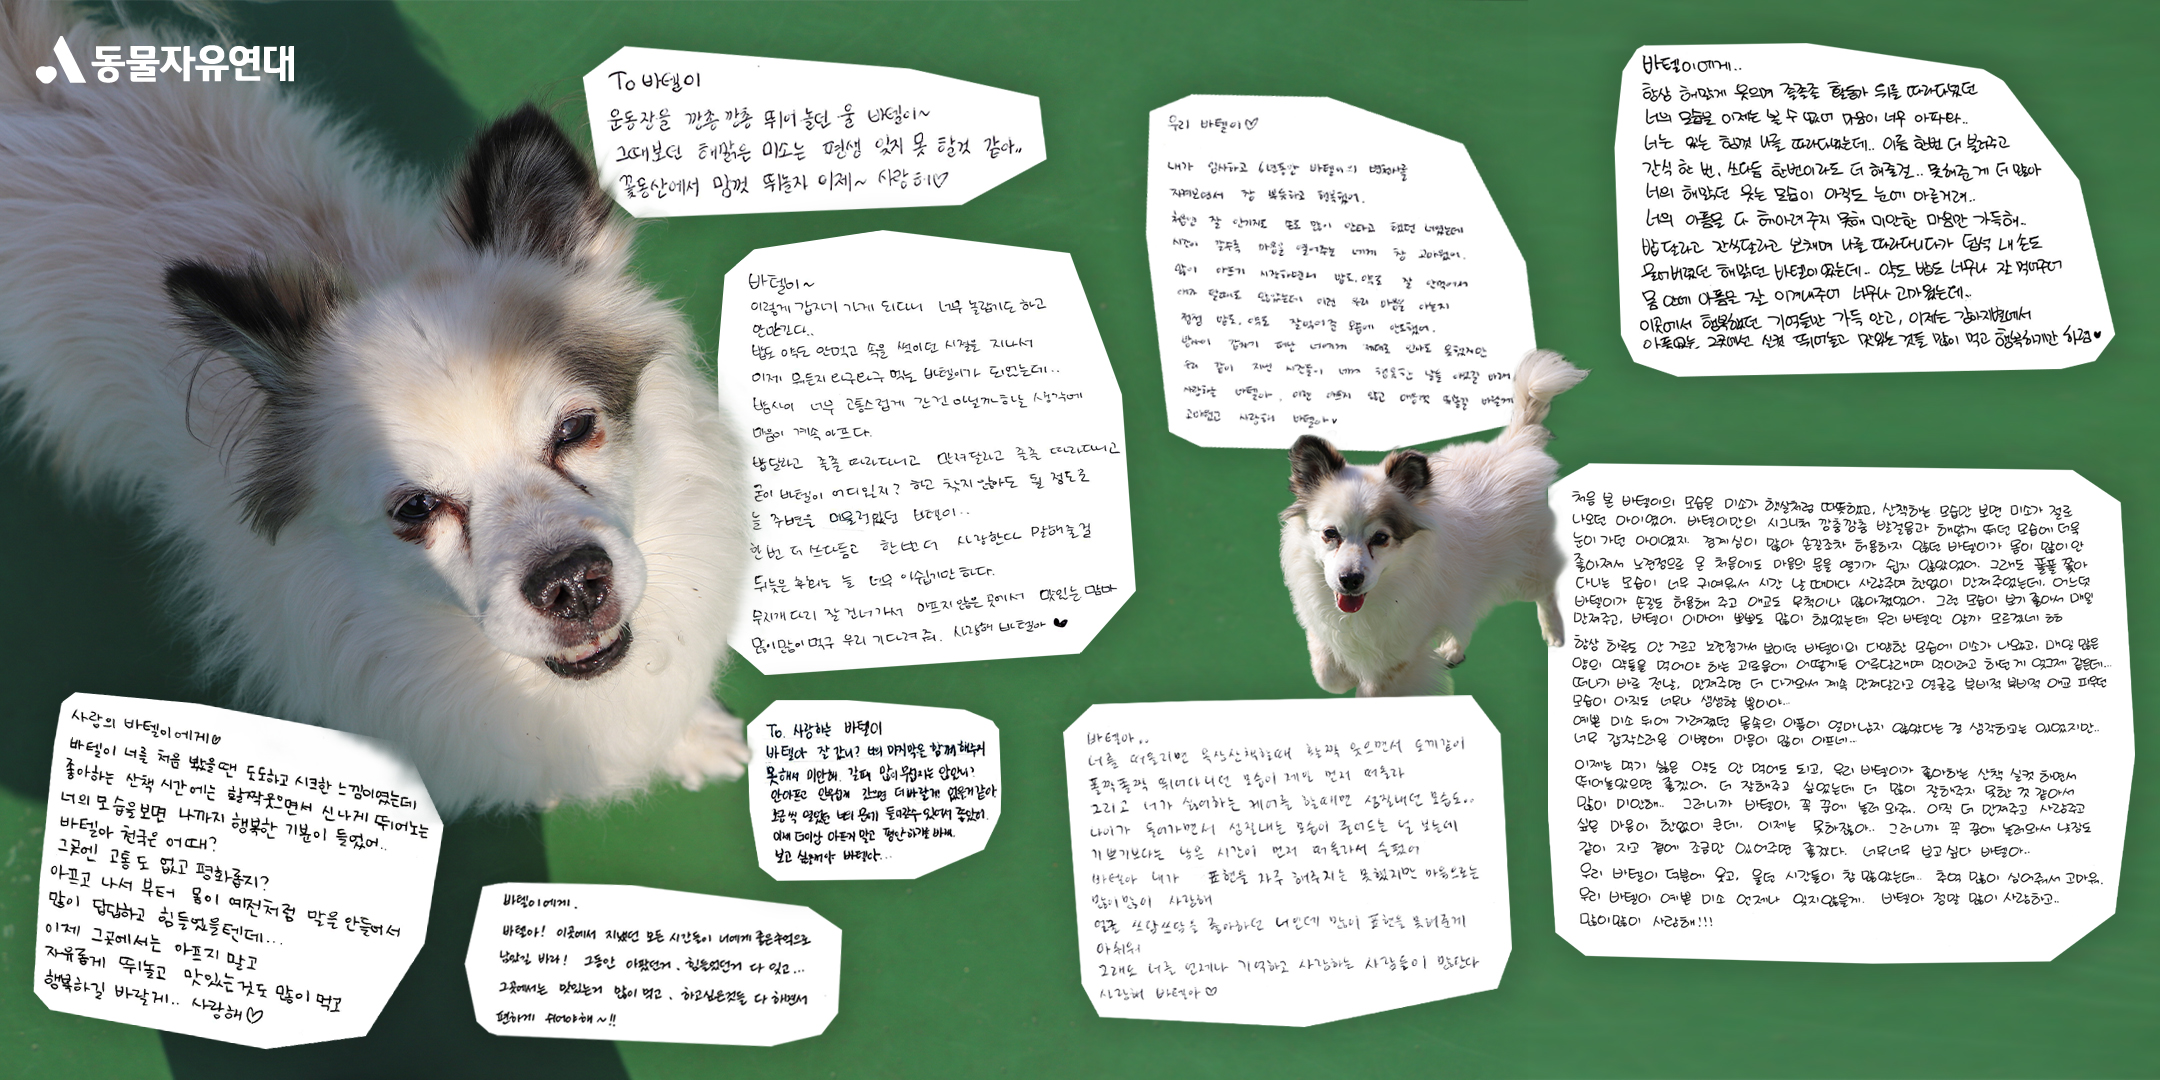 동물자유연대
To 바텔이
운동장을 깐총깐총 뛰어놀던 울 바텔이~
그때보던 해맑은 미소는 평생 잊지 못할것 같아..
꽃동산에서 맘껏 뛰놀자 이제~ 사랑해♡
바텔이~
이렇게 갑자기 가게 되다니 너무 놀랍기도 하고
안믿긴다..
밥도 약도 안먹고 속을 썩이던 시절을 지나서
이제 뭐든지 와구와구 먹는 바텔이가 되었는데..
밤사이 너무 고통스럽게 간건 아닐까하는 생각에
마음이 계속 아프다.
밥달라고 졸졸 따라다니고 만져달라고 졸졸 따라다니고
굳이 바텔이 어디있지? 하고 찾지 않아도 될 정도로
늘 주변을 머물러있던 바텔이..
한번 더 쓰다듬고 한번 더 사랑한다 말해줄걸
뒤늦은 후회는 늘 너무 아쉽기만 하다.
무지개다리 잘 건너가서 아프지 않은 곳에서 맛있는 맘마
많이많이 먹구 우리 기다려줘. 사랑해 바텔아 ♥
우리 바텔이♡
내가 입사하고 6년동안 바텔이의 변화를
지켜보면서 참 뿌듯하고 행복했어.
시간이 갈수록 마음을 열어주는 네게 참 고마웠어.
많이 아프기 시작하면서 밥도, 약도 잘 안먹어서
애가 탈때도 있었는데 이런 우리 마음을 아는지
점점 밥도, 약도 잘먹어준 모습에 안도했어.
밤사이 갑자기 떠난 너에게 제대로 인사도 못했지만
우리 같이 지낸 시간들이 네게 행복한 날들 이었길 바래
사랑하는 바텔아, 이젠 아프지 않고 마음껏 뛰놀길 바랄게
고마웠고 사랑해 바텔아♥
바텔이에게..
항상 해맑게 웃으며 졸졸졸 활동가 뒤를 따라다녔던
너의 모습을 이제는 볼 수 없어 마음이 너무 아파와..
너는 있는 힘껏 나를 따라다녔는데.. 이름 한번 더 불러주고
간식 한 번, 쓰다듬 한번이라도 더 해줄걸.. 못해준게 더 많아
너의 해맑던 웃는 모습이 아직도 눈에 아른거려..
너의 아픔을 다 헤아려주지 못해 미안한 마음만 가득해..
밥달라고 간식달라고 보채며 나를 따라다니다가 덥석 내 손도
물어버렸던 해맑던 바텔이였는데.. 약도 밥도 너무나 잘 먹어주어
몸 안에 아픔은 잘 이겨내주어 너무나 고마웠는데..
이곳에서 행복했던 기억들만 가득 안고, 이제는 강아지별에서
아픔없는, 그곳에선 실컷 뛰어놀고 맛있는 것들 많이 먹고 행복하기만 하렴♥
처음 본 바텔이의 모습은 미소가 햇살처럼 따뜻했고, 산책하는 모습만 보면 미소가 절로
나오던 아이였어. 바텔이만의 시그니처 깡총깡총 발걸음과 해맑게 뛰던 모습에 더욱
눈이 가던 아이였지. 경계심이 많아 손길조차 허용하지 않던 바텔이가 몸이 많이 안
좋아져서 노견정으로 온 처음에도 마음의 문을 열기가 쉽지 않았었어. 그래도 졸졸 쫓아
다니는 모습이 너무 귀여워서 시간 날 때마다 사랑주며 한없이 만져주었는데, 어느덧
바텔이가 손길도 허용해 주고 애교도 무척이나 많아졌었어. 그런 모습이 보기 좋아서 매일
만져주고, 바텔이 이마에 뽀뽀도 많이 했었는데 우리 바텔인 알까 모르겠네 ㅎㅎ
항상 하루도 안 거르고 노견정가서 보이던 바텔이의 다양한 모습에 미소가 나왔고, 매일 많은
양의 약들을 먹어야 하는 괴로움에 어떻게든 어르고달래며 먹이려고 하던 게 엊그제 같은데...
떠나기 바로 전날, 만져주면 더 다가와서 계속 만져달라고 얼굴로 부비적 부비적 애교 피우던
모습이 아직도 너무나 생생할 뿐이야...
예쁜 미소 뒤에 가려졌던 몸속의 아픔이 얼마남지 않았다는 걸 생각하고는 있었지만..
너무 갑작스러운 이별에 마음이 많이 아프네...
이제는 먹기 싫은 약도 안 먹어도 되고, 우리 바텔이가 좋아하는 산책 실컷 하면서
뛰어놀았으면 좋겠어. 더 잘해주고 싶었는데 더 많이 잘해주지 못한 것 같아서
많이 미안해.. 그러니까 바텔아, 꼭 꿈에 놀러 와줘. 아직 더 만져주고 사랑주고
싶은 마음이 한없이 큰데, 이제는 못하잖아.. 그러니까 꼭 꿈에 놀러와서 낮잠도
같이 자고 곁에 조금만 있어주면 좋겠다. 너무너무 보고싶다 바텔아..
우리 바텔이 덕분에 웃고, 울던 시간들이 참 많았는데.. 추억 많이 심어줘서 고마워.
우리 바텔이 예쁜 미소 언제나 잊지않을게. 바텔아 정말 많이 사랑하고..
많이많이 사랑해!!!
사랑의 바텔이에게♡
바텔이 너를 처음 봤을땐 도도하고 시크한 느낌이였는데
좋아하는 산책 시간에는 활짝웃으면서 신나게 뛰어노는
너의 모습을보면 나까지 행복한 기분이 들었어..
바텔아 천국은 어때?
그곳엔 고통도 없고 평화롭지?
아프고 나서 부터 몸이 예전처럼 말을 안들어서
많이 답답하고 힘들었을텐데...
이제 그곳에서는 아프지 말고
자유롭게 뛰놀고 맛있는것도 많이 먹고
행복하길 바랄게.. 사랑해♡
To. 사랑하는 바텔이
바텔아 잘 갔니? 너의 마지막을 함께 해주지
못해서 미안해. 갈때 많이 무섭지는 않았니?
안아프고 안무섭게 갔으면 더바랄게 없을거같아
이제 더이상 아프지 말고 평안하기를 바래.
보고 싶을거야 바텔아...
바텔이에게.
바텔아! 이곳에서 지냈던 모든 시간들이 너에게 좋은추억으로
남았길 바라! 그동안 아팠던거, 힘들었던거 다 잊고...
그곳에서는 맛있는거 많이 먹고, 하고싶은것들 다 하면서
편하게 쉬어야해~!!
바텔아..
너를 떠올리면 옥상산책할때 활짝 웃으면서 토끼같이
폴짝폴짝 뛰어다니던 모습이 제일 먼저 떠올라
그리고 너가 싫어하는 케어를 할때면 성질내던 모습도..
나이가 들어가면서 성질내는 모습이 줄어드는 널 보는데
기쁘기보다는 남은 시간이 먼저 떠올라서 슬펐어
바텔아 내가 표현을 자주 해주지는 못했지만 마음으로는
많이많이 사랑해
얼굴 쓰담쓰담을 좋아하던 너인데 많이 표현을 못해준게
아쉬워
그래도 너를 언제나 기억하고 사랑하는 사람들이 많단다
사랑해 바텔아♡